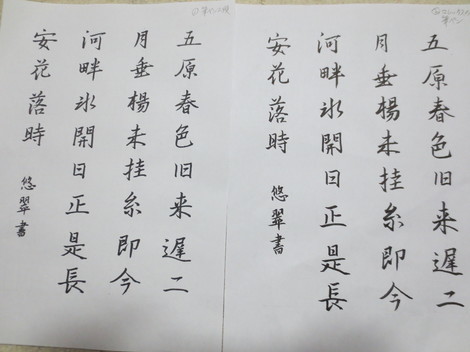 五原春色旧来遅二
月垂楊未挂糸即今
河畔氷開日正是長
安花落時
悠翠書
五原春色旧来遅二
月垂楊未挂糸即今
河畔氷開日正是長
安花落時
悠翠書